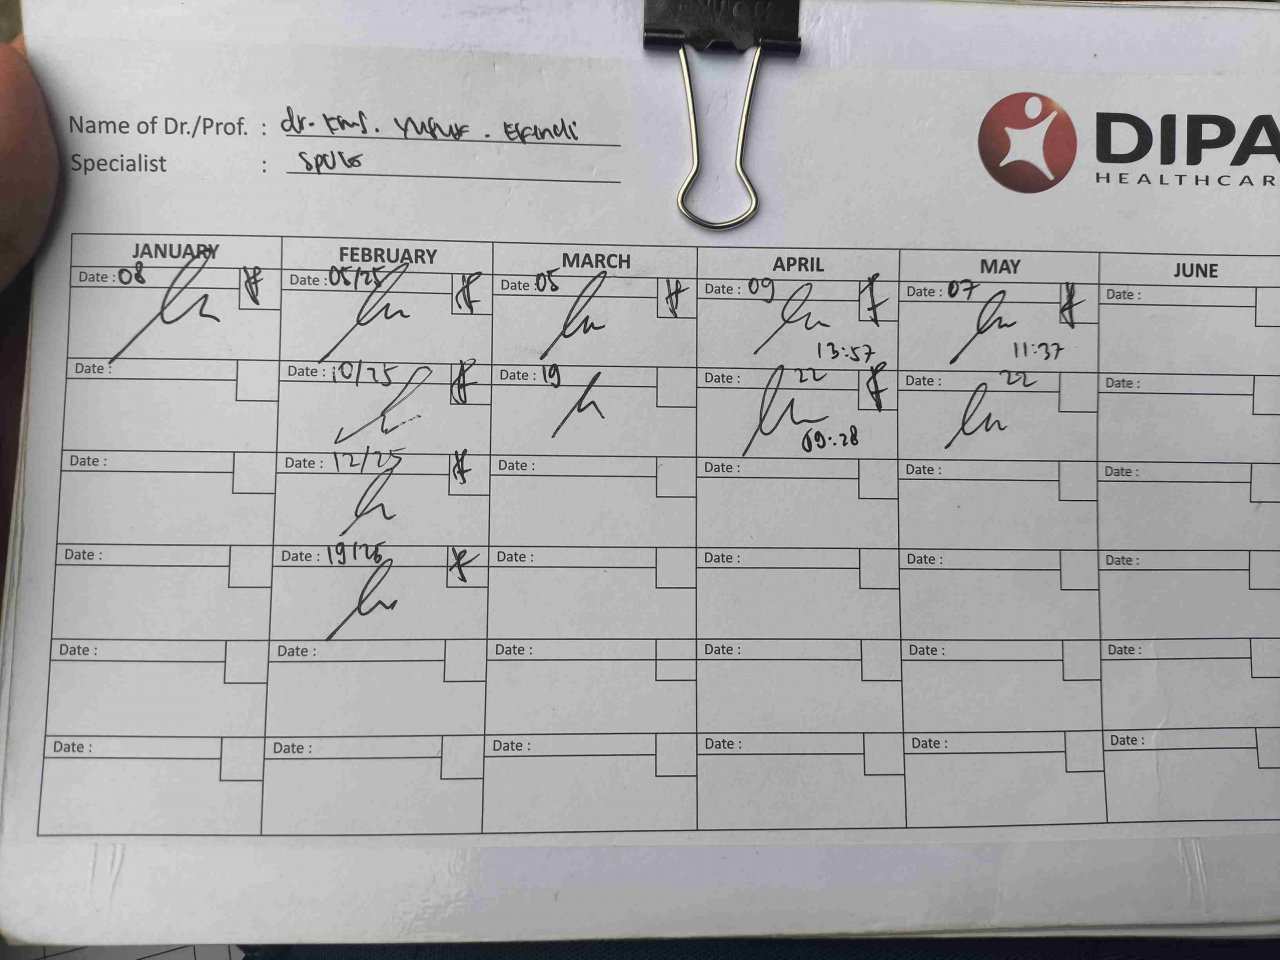 Name of Dr./Prof. : dr. Kms. Yusuf. Efendi
Specialist :
DIPA
HEALTHCAR
JANUARY FEBRUARY MARCH APRIL MAY JUNE
Date : 08 Date : 05/25 Date : 05 Date : 09 Date : 07 Date :
13:57 11:37
Date : Date : 10/25 Date : 19 Date : 22 Date : 22 Date :
09:28
Date : Date : 12/25 Date : Date : Date : Date :
Date : Date : 19/25 Date : Date : Date : Date :
Date : Date : Date : Date : Date : Date :
Date : Date : Date : Date : Date : Date :